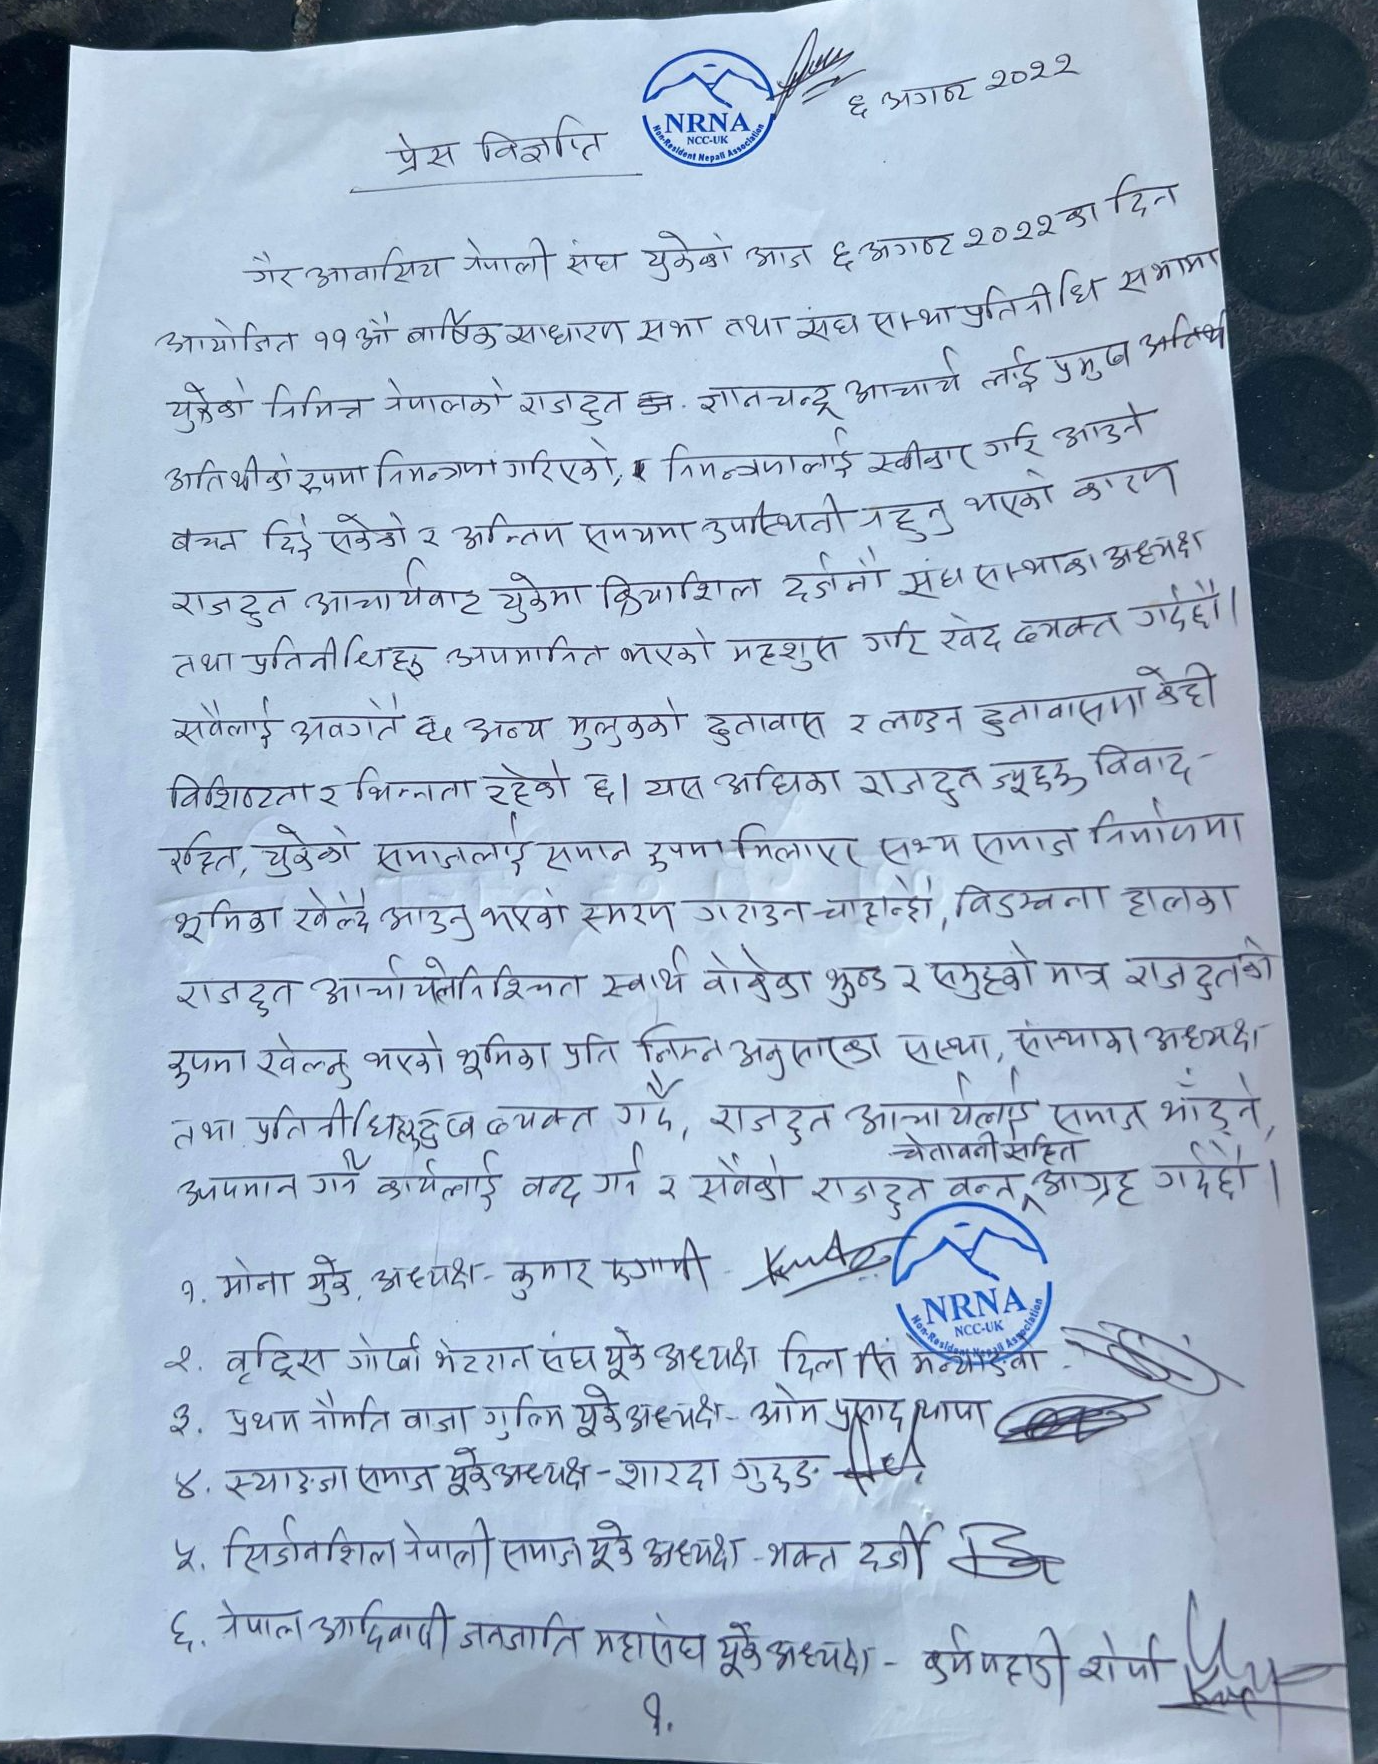 NRNA
NCC-UK
Non-Resident Nepali Association
६ अगष्ट २०२२
प्रेस विज्ञप्ति
गैर आवासिय नेपाली संघ युकेको आज ६ अगष्ट २०२२ का दिन
आयोजित ११ औं बार्षिक साधारण सभा तथा संघ सस्था प्रतिनीधि सभामा
युकेको निमित्त नेपालको राजदुत ज्ञानचन्द्र आचार्य लाई प्रमुख अतिथी
अतिथीको रुपमा निमन्त्रणा गरिएको, र निमन्त्रणालाई स्वीकार गरि आउने
बचन दिई सकेको र अन्तिम समयमा उपस्थिती नहुनु भएको कारण
राजदुत आचार्यवाट युकेमा क्रियाशिल दर्जनौ संघ सस्थाका अध्यक्ष
तथा प्रतिनीधिहरु अपमानित भएको महशुस गरि खेद व्यक्त गर्दछौं।
सवैलाई अवगतै छ अन्य मुलुकको दुतावास र लण्डन दुतावासमा केही
विशिष्टता र भिन्नता रहेको छ। यस अघिका राजदुत ज्यूहरु विवाद-
रहित, युकेको समाजलाई समान रुपमा मिलाएर सभ्य समाज निर्माणमा
भूमिका खेल्दै आउनु भएको स्मरण गराउन चाहान्छौं, विडम्वना हालका
राजदुत आर्चायले निश्चित स्वार्थ वोकेका झुण्ड र समुहको मात्र राजदुतको
रुपमा खेल्नु भएको भूमिका प्रति निम्न अनुसारका सस्था, संस्थाका अध्यक्ष
तथा प्रतिनीधिहरु दुख व्यक्त गर्दै, राजदुत आचार्यलाई समाज भाँड्ने,
चेतावनी सहित
अपमान गर्ने कार्यलाई वन्द गर्न र सवैको राजदुत वन्न आग्रह गर्दछौं।
१. मोना युके, अध्यक्ष - कुमार एगामी
NRNA
NCC-UK
Non-Resident Nepali Association
२. वृट्रिस गोर्खा भेटरान संघ यूके अध्यक्ष दिल सिं
३. प्रथम नौमति वाजा गुल्मि यूके अध्यक्ष - ओम प्रसाद थापा
४. स्याङजा समाज यूके अध्यक्ष - शारदा गुरुङ
५. सिर्जनशिल नेपाली समाज यूके अध्यक्ष - भक्त दर्जी
६. नेपाल आदिवासी जनजाति महासंघ यूके अध्यक्ष - शेर्पा
१.